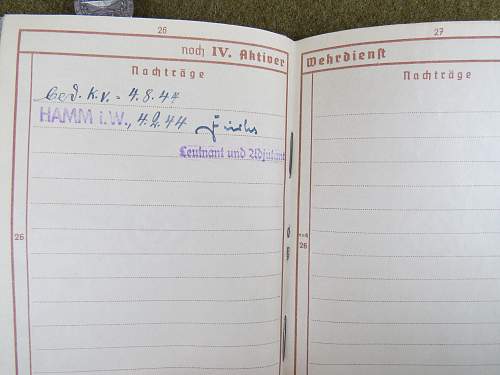 26
noch IV. Aktiver
Nachträge
bed. k.v. - 4.8.44
HAMM i.W., 4.2.44
Leutnant und Adjutant
26
27
Wehrdienst
Nachträge
noch
26